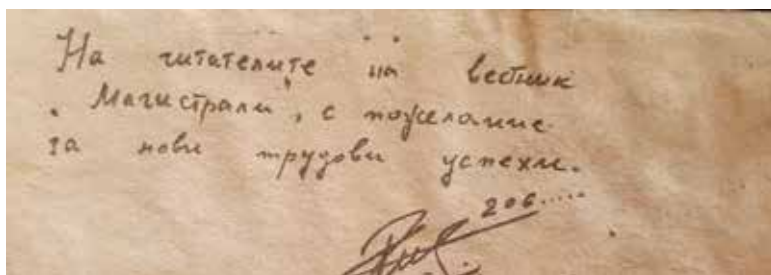 На читателите на вестник
„Магистрали", с пожелание
за нови трудови успехи.
206.....